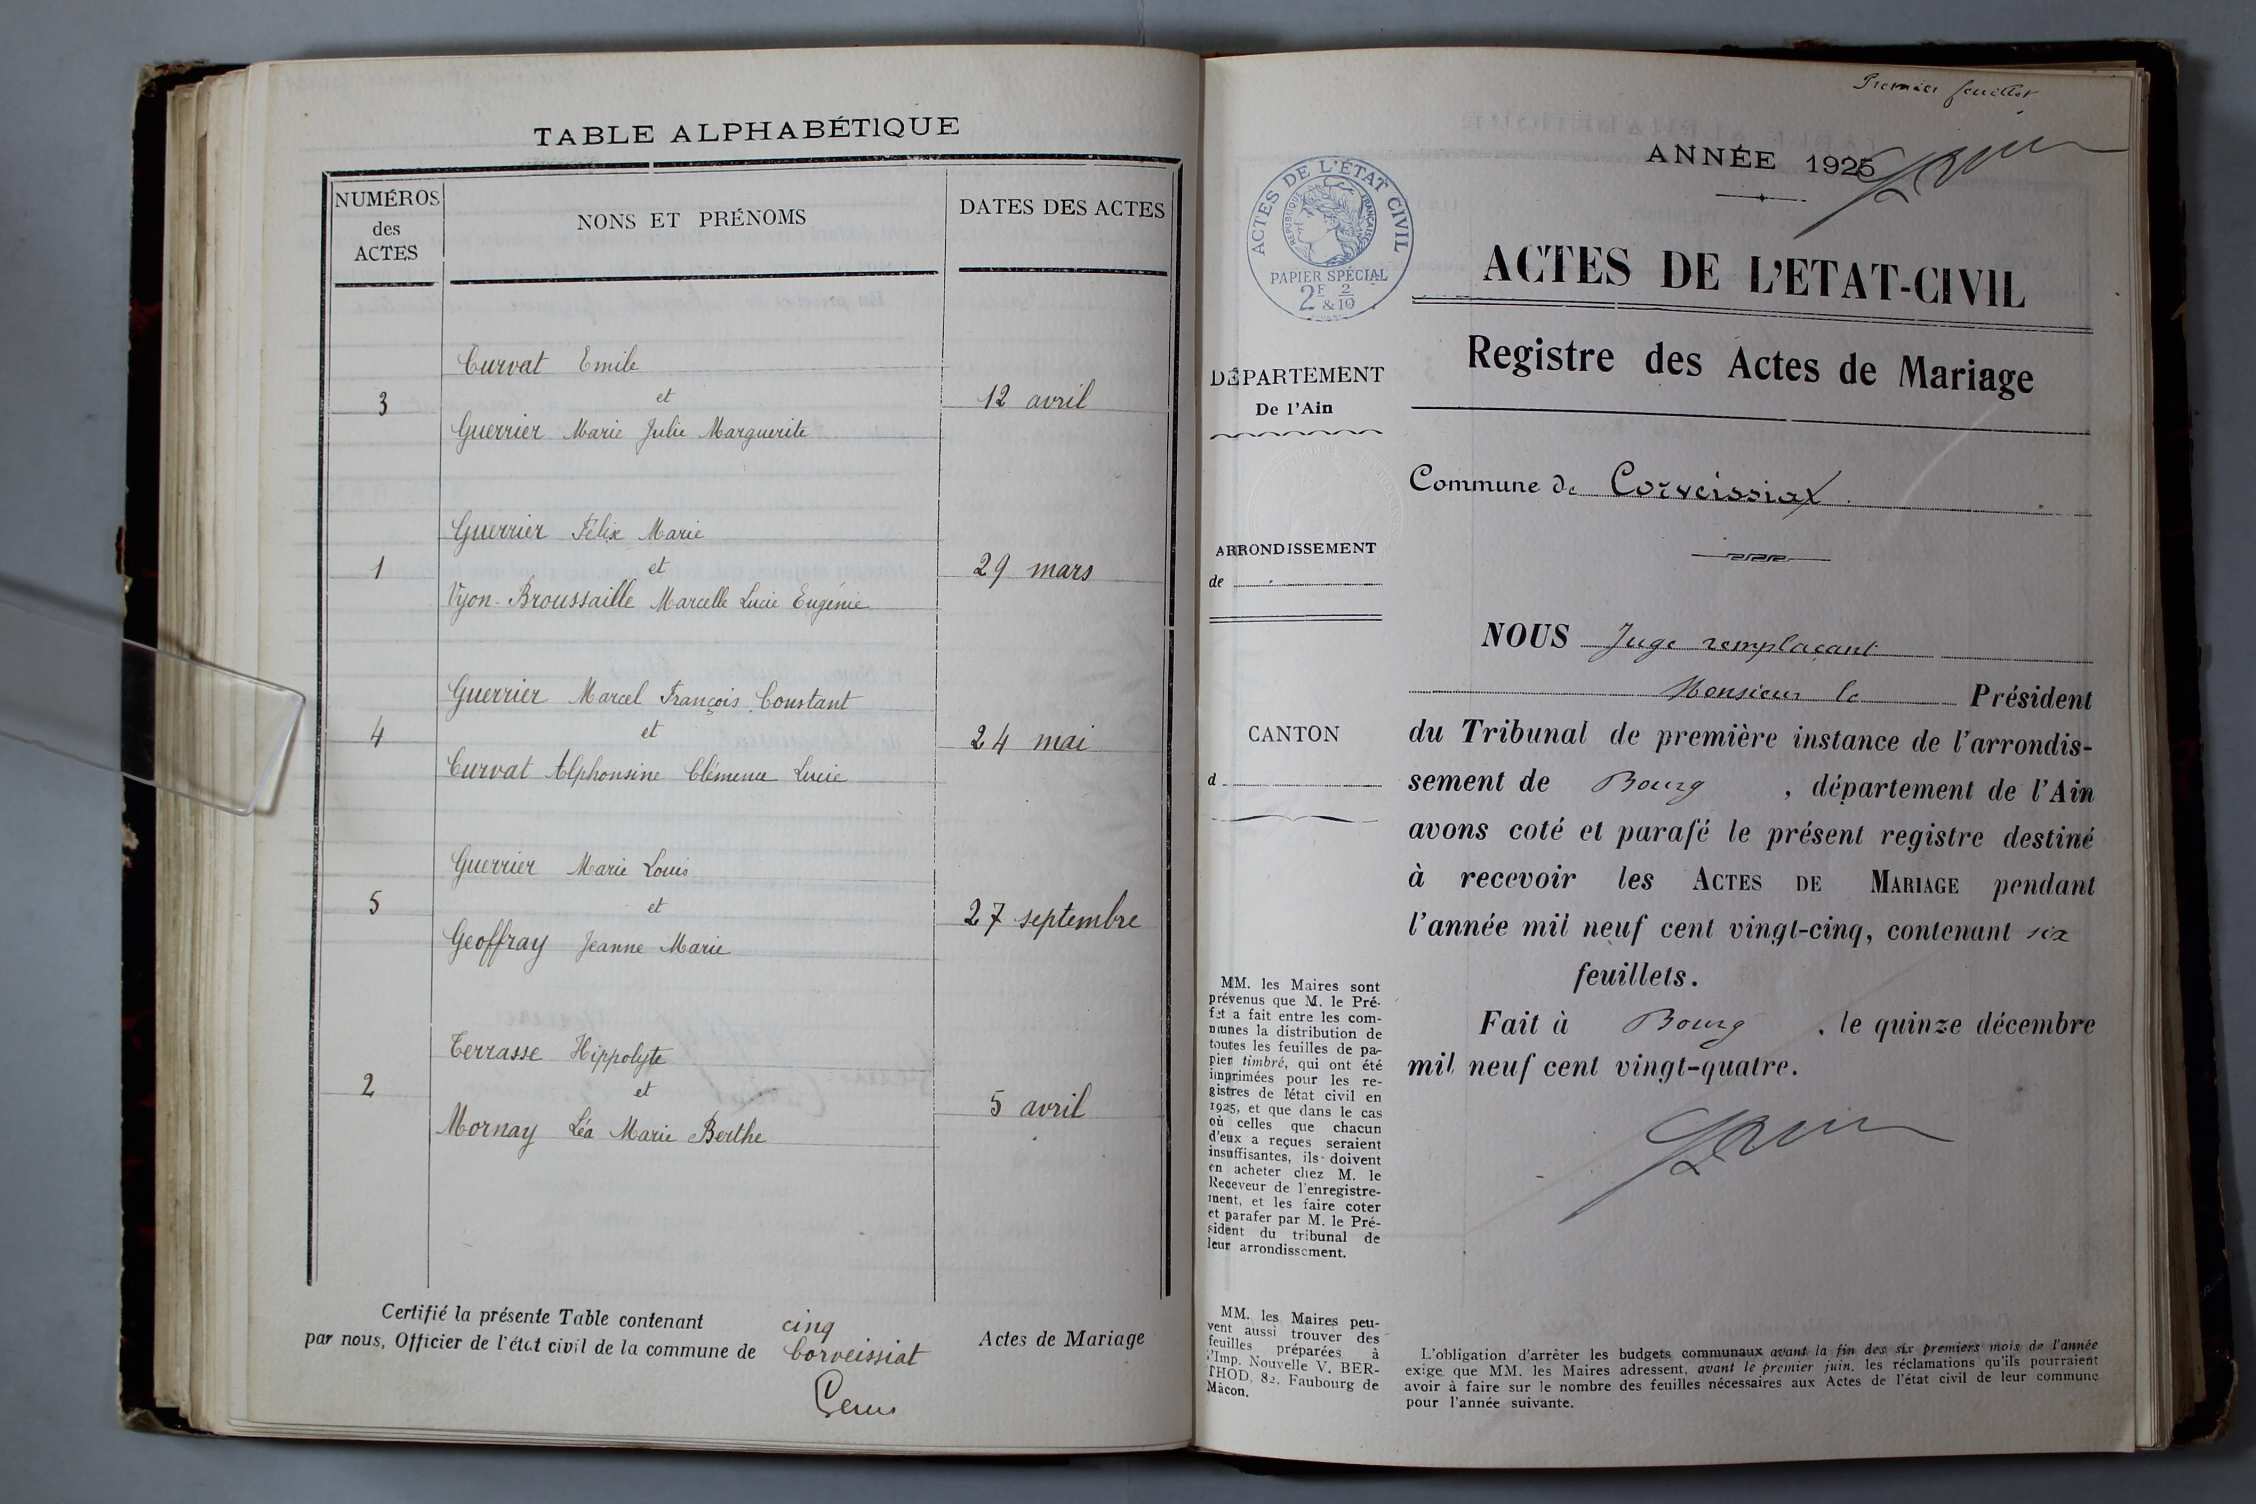 TABLE ALPHABÉTIQUE
NUMÉROS
des
ACTES
NONS ET PRÉNOMS
DATES DES ACTES
Curvat Emile
3
et
12 avril
Guerrier Marie Julie Marguerite
Guerrier Félix Marie
1
et
29 mars
Vyon-Broussaille Marcelle Lucie Eugénie
Guerrier Marcel François Constant
4
et
24 mai
Curvat Alphonsine Clémence Lucie
Guerrier Marie Louis
5
et
27 septembre
Geoffray Jeanne Marie
Terrasse Hippolyte
2
et
5 avril
Mornay Léa Marie Berthe
Certifié la présente Table contenant cinq Actes de Mariage
par nous, Officier de l'état civil de la commune de Corveissiat
Premier feuillet
ANNÉE 1925
ACTES DE L'ÉTAT CIVIL
RÉPUBLIQUE FRANÇAISE
PAPIER SPÉCIAL
2F & 2/10
ACTES DE L'ETAT-CIVIL
Registre des Actes de Mariage
DÉPARTEMENT
De l'Ain
Commune de Corveissiat
ARRONDISSEMENT
de
CANTON
d
NOUS Juge remplaçant
Monsieur le Président
du Tribunal de première instance de l'arrondis-
sement de Bourg, département de l'Ain
avons coté et parafé le présent registre destiné
à recevoir les ACTES DE MARIAGE pendant
l'année mil neuf cent vingt-cinq, contenant six
feuillets.
Fait à Bourg, le quinze décembre
mil neuf cent vingt-quatre.
MM. les Maires sont
prévenus que M. le Pré-
fet a fait entre les com-
munes la distribution de
toutes les feuilles de pa-
pier timbré, qui ont été
imprimées pour les re-
gistres de l'état civil en
1925, et que dans le cas
où celles que chacun
d'eux a reçues seraient
insuffisantes, ils doivent
en acheter chez M. le
Receveur de l'enregistre-
ment, et les faire coter
et parafer par M. le Pré-
sident du tribunal de
leur arrondissement.
MM. les Maires peu-
vent aussi trouver des
feuilles préparées à
l'Imp. Nouvelle V. BER-
THOD, 82, Faubourg de
Mâcon.
L'obligation d'arrêter les budgets communaux avant la fin des six premiers mois de l'année
exige que MM. les Maires adressent, avant le premier juin, les réclamations qu'ils pourraient
avoir à faire sur le nombre des feuilles nécessaires aux Actes de l'état civil de leur commune
pour l'année suivante.